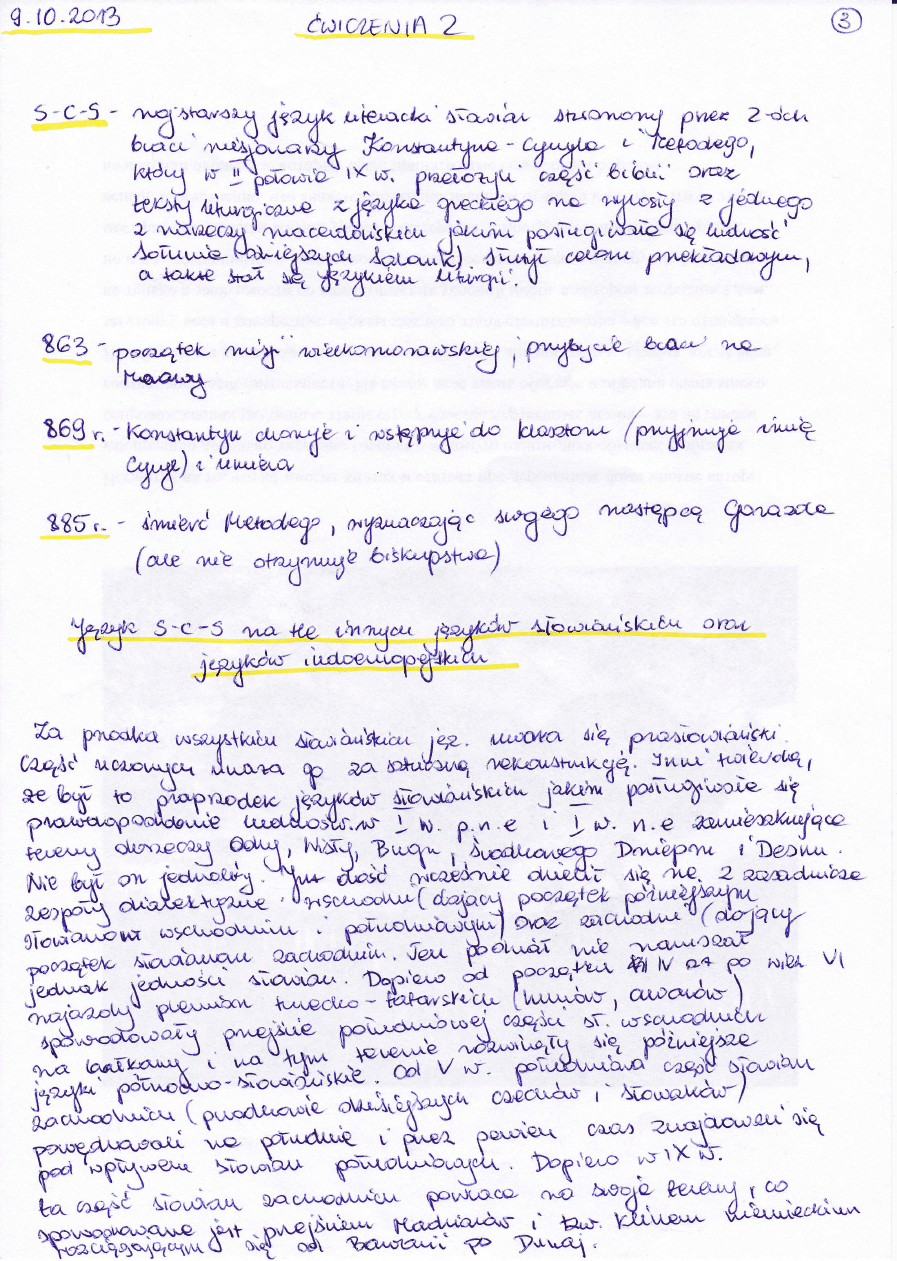 9.10.2013
ĆWICZENIA 2
3
S-C-S - najstarszy język literacki słowian stworzony przez 2-óch
braci misjonarzy Konstantyna-Cyryla i Metodego,
który w II połowie IX w. przełożyli część biblii oraz
teksty liturgiczne z języka greckiego na wyrosły z jednego
z narzeczy macedońskich jakimi posługiwała się ludność
Sołunia (dzisiejszych Salonik) służył celom przekładowym,
a także stał się językiem liturgii.
863 - początek misji wielkomorawskiej, przybycie braci na
Morawy
869 r. - Konstantyn choruje i wstępuje do klasztoru (przyjmuje imię
Cyryl) i umiera
885 r. - śmierć Metodego, wyznaczając swojego następcą Gorazda
(ale nie otrzymuje biskupstwa)
Język S-C-S na tle innych języków słowiańskich oraz
języków indoeuropejskich
Za przodka wszystkich słowiańskich jęz. uważa się prasłowiański.
Część uczonych uważa go za sztuczną rekonstrukcję. Inni twierdzą,
że był to praprzodek języków słowiańskich jakim posługiwała się
prawdopodobnie ludność w I w. p.n.e i I w. n.e zamieszkująca
tereny dorzeczy Odry, Wisły, Bugu, środkowego Dniepru i Desny.
Nie był on jednolity. Już dość wcześnie dzieli się na 2 zasadnicze
zespoły dialektyczne: wschodni (dający początek późniejszym
słowianom wschodnim i południowym) oraz zachodni (dający
początek słowianom zachodnim. Ten podział nie naruszał
jednak jedności słowian. Dopiero od początku IV po wiek VI
najazdy plemion turecko-tatarskich (hunów, awarów)
spowodowały przejście południowej części sł. wschodnich
na bałkany i na tym terenie rozwinęły się późniejsze
języki północno-słowiańskie. Od V w. południowa część słowian
zachodnich (przodkowie dzisiejszych czechów i słowaków)
powędrowali na południe i przez pewien czas znajdowali się
pod wpływem słowian południowych. Dopiero w IX w.
ta część słowian zachodnich powraca na swoje tereny, co
spowodowane jest przejściem Madziarów i tzw. klinem niemieckim
rozciągającym się od Bawarii po Dunaj.